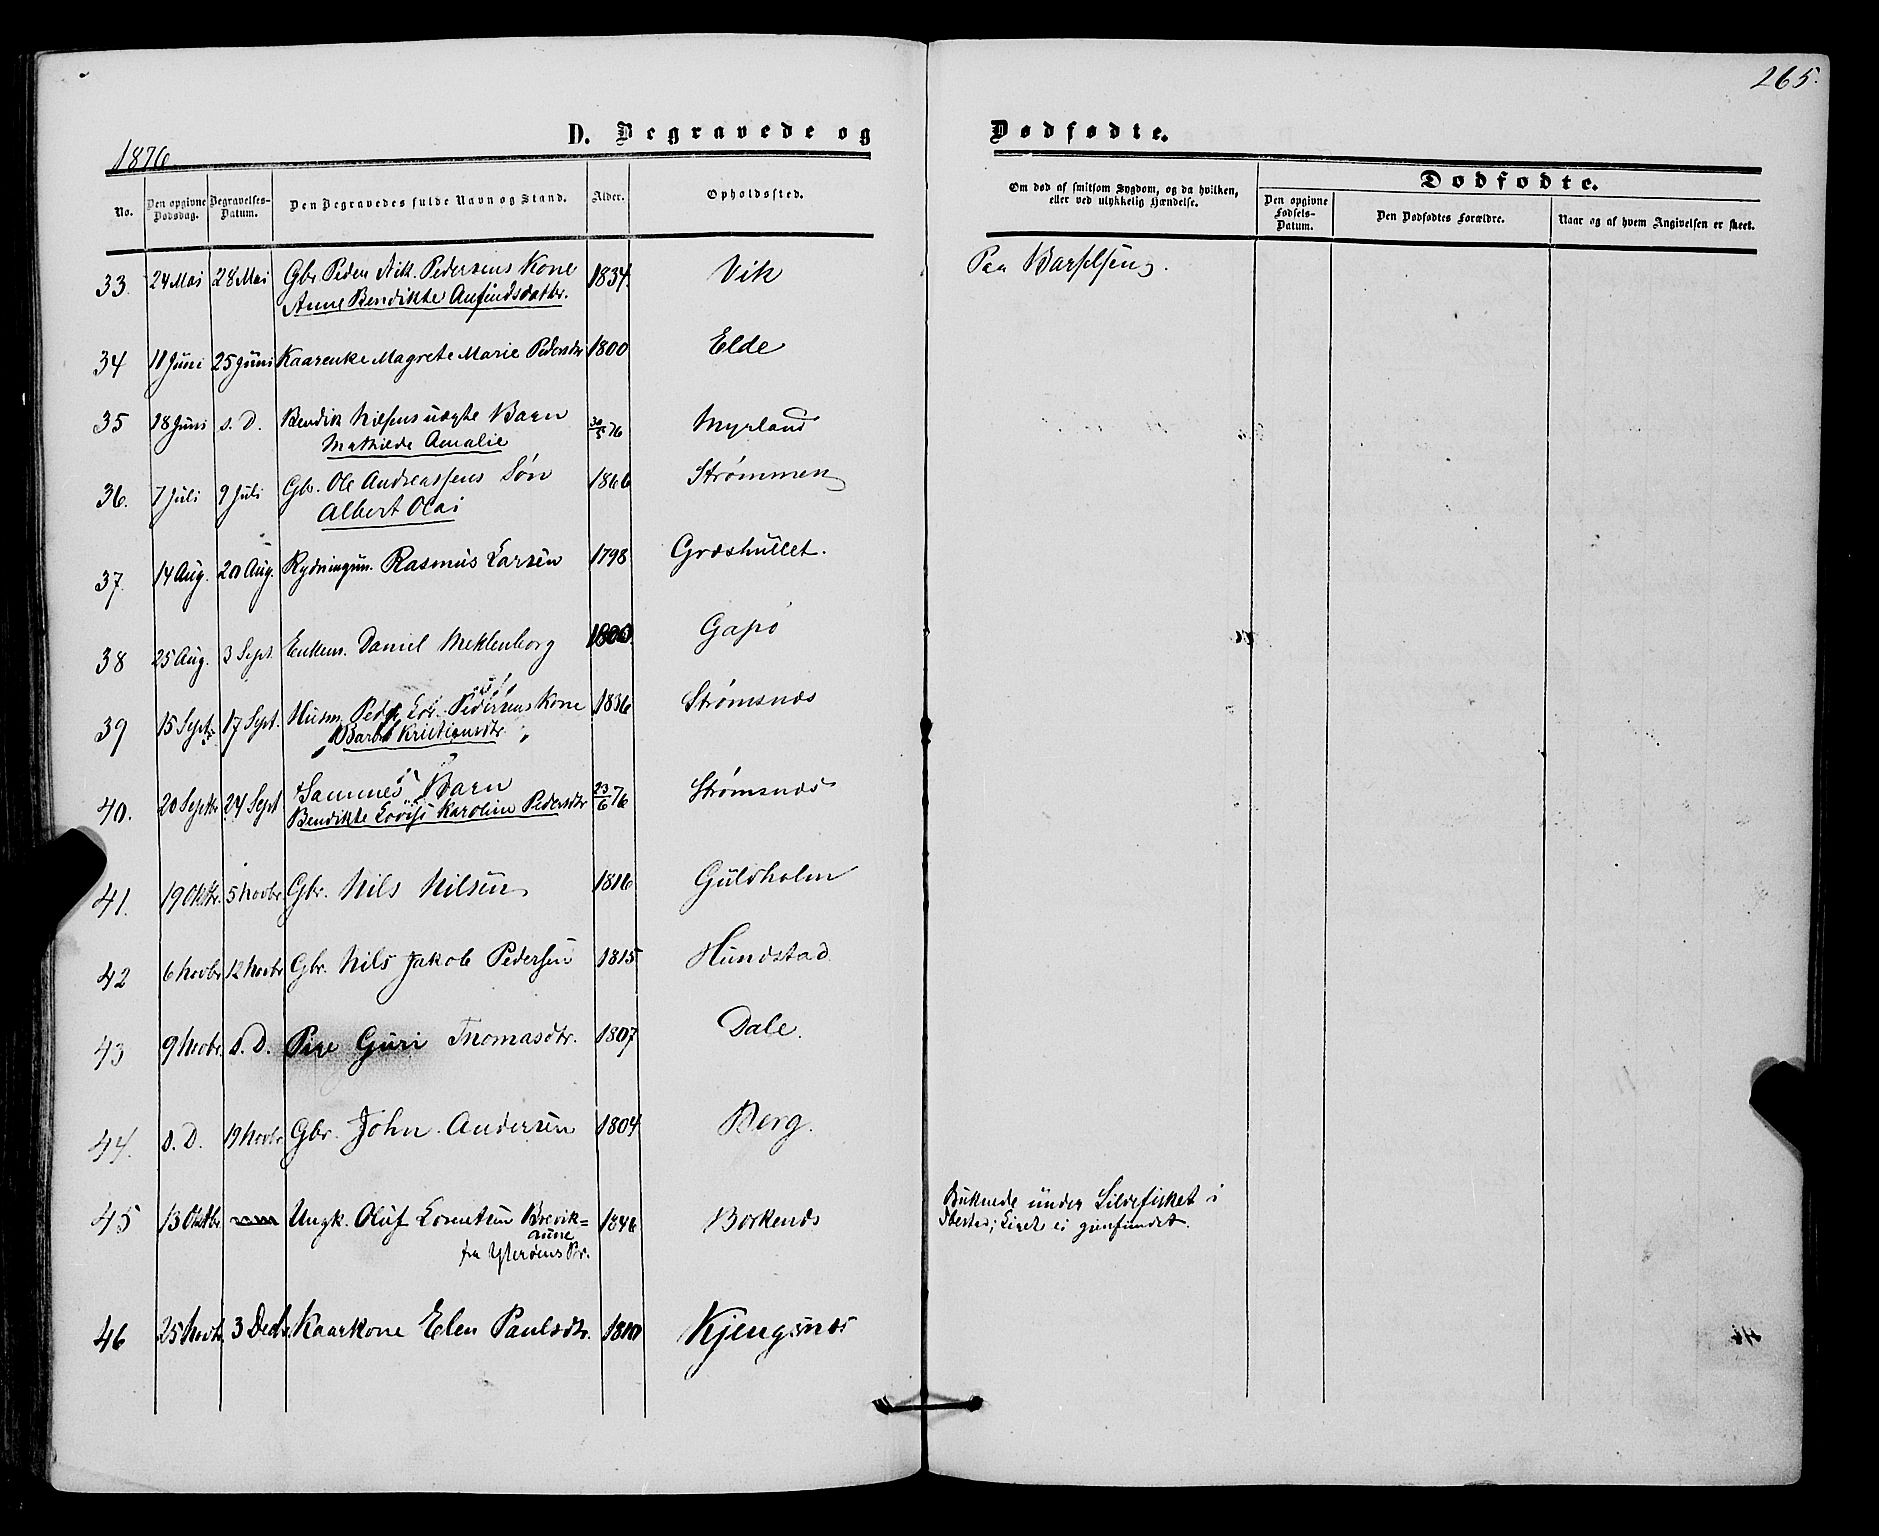 265.
D. Begravede og Dødfødte.
1876
No.
Den opgivne Dødsdag.
Begravelses-Datum.
Den Begravedes fulde Navn og Stand.
Alder.
Opholdssted.
Om død af smitsom Sygdom, og da hvilken, eller ved ulykkelig Hændelse.
Dødfødte.
Den opgivne Fødsels-Datum.
Den Dødfødtes Forældre.
Naar og af hvem Angivelsen er skeet.
33. 24 Mai 28 Mai Gbr. Peder Nik. Pedersens Kone 1834 Vik Paa Barselseng.
Anne Bendikte Anfindsdatr.
34 11 Juni 25 Juni Kaarenke Magrete Marie Pedersdtr 1800 Elde
35 18 Juni s. D. Bendik Nilsens uægte Barn 30/5 76 Myrland
Mathilde Amalie
36. 7 Juli 9 Juli Gbr. Ole Andreassens Søn 1866 Strømmen
Albert Olai
37. 14 Aug. 20 Aug. Rydningsm. Rasmus Larsen 1798 Græshullet.
38 25 Aug. 3 Sept. Enkem. Daniel Meklenborg 1800 Gapø
39 15 Sept. 17 Sept. Husm. Peder Edv. Pedersens Kone 1836 Strømsnæs
Barbr. Kristiansdtr.
40. 20 Septbr 24 Sept Sammes Barn 23/6 76 Strømsnæs
Bendikte Lovise Karoline Pedersdtr
41. 19 Oktbr. 5 Novbr. Gbr. Nils Nilsen 1816 Guldholm
42 6 Novbr 12 Novbr Gbr. Nils Jakob Pedersen 1815 Hundstad
43 9 Novbr. s. D. Pige Guri Thomasdtr. 1807 Dale.
44. s. D. 19 Novbr Gbr. John Andersen 1804 Berg.
45 13 Oktbr Ungk. Oluf Lorentsen Brevik= 1846 Borkenæs Druknede under Sildefisket i
aune
fra Ytterøens Pr. Ibestad; Liget ei gjenfundet.
46 25 Novbr 3 Decbr. Kaarkone Elen Paulsdtr. 1810 Kjengsnæs